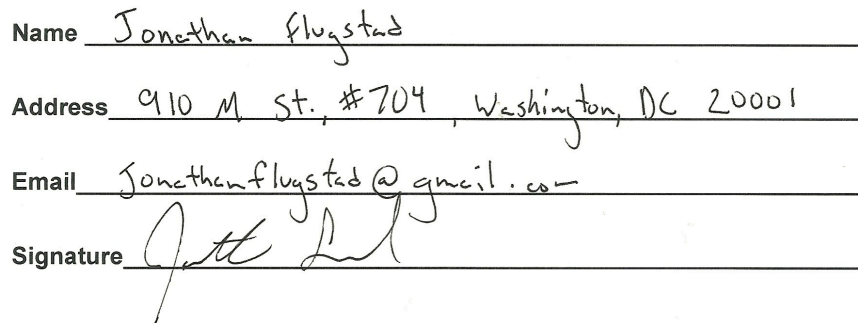 Name Jonathan Flugstad
Address 910 M St., #704, Washington, DC 20001
Email Jonathanflugstad@gmail.com
Signature